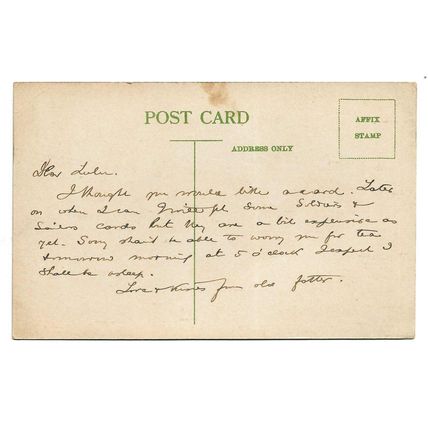 POST CARD
AFFIX
STAMP
ADDRESS ONLY
Dear Lulu.
I thought you would like a card. Later
on when I can I will get some Soldiers &
Sailors Cards but they are a bit expensive as
yet. Sorry shan't be able to worry you for tea
tomorrow morning at 5 o'clock I expect I
shall be asleep.
Love & Kisses from old